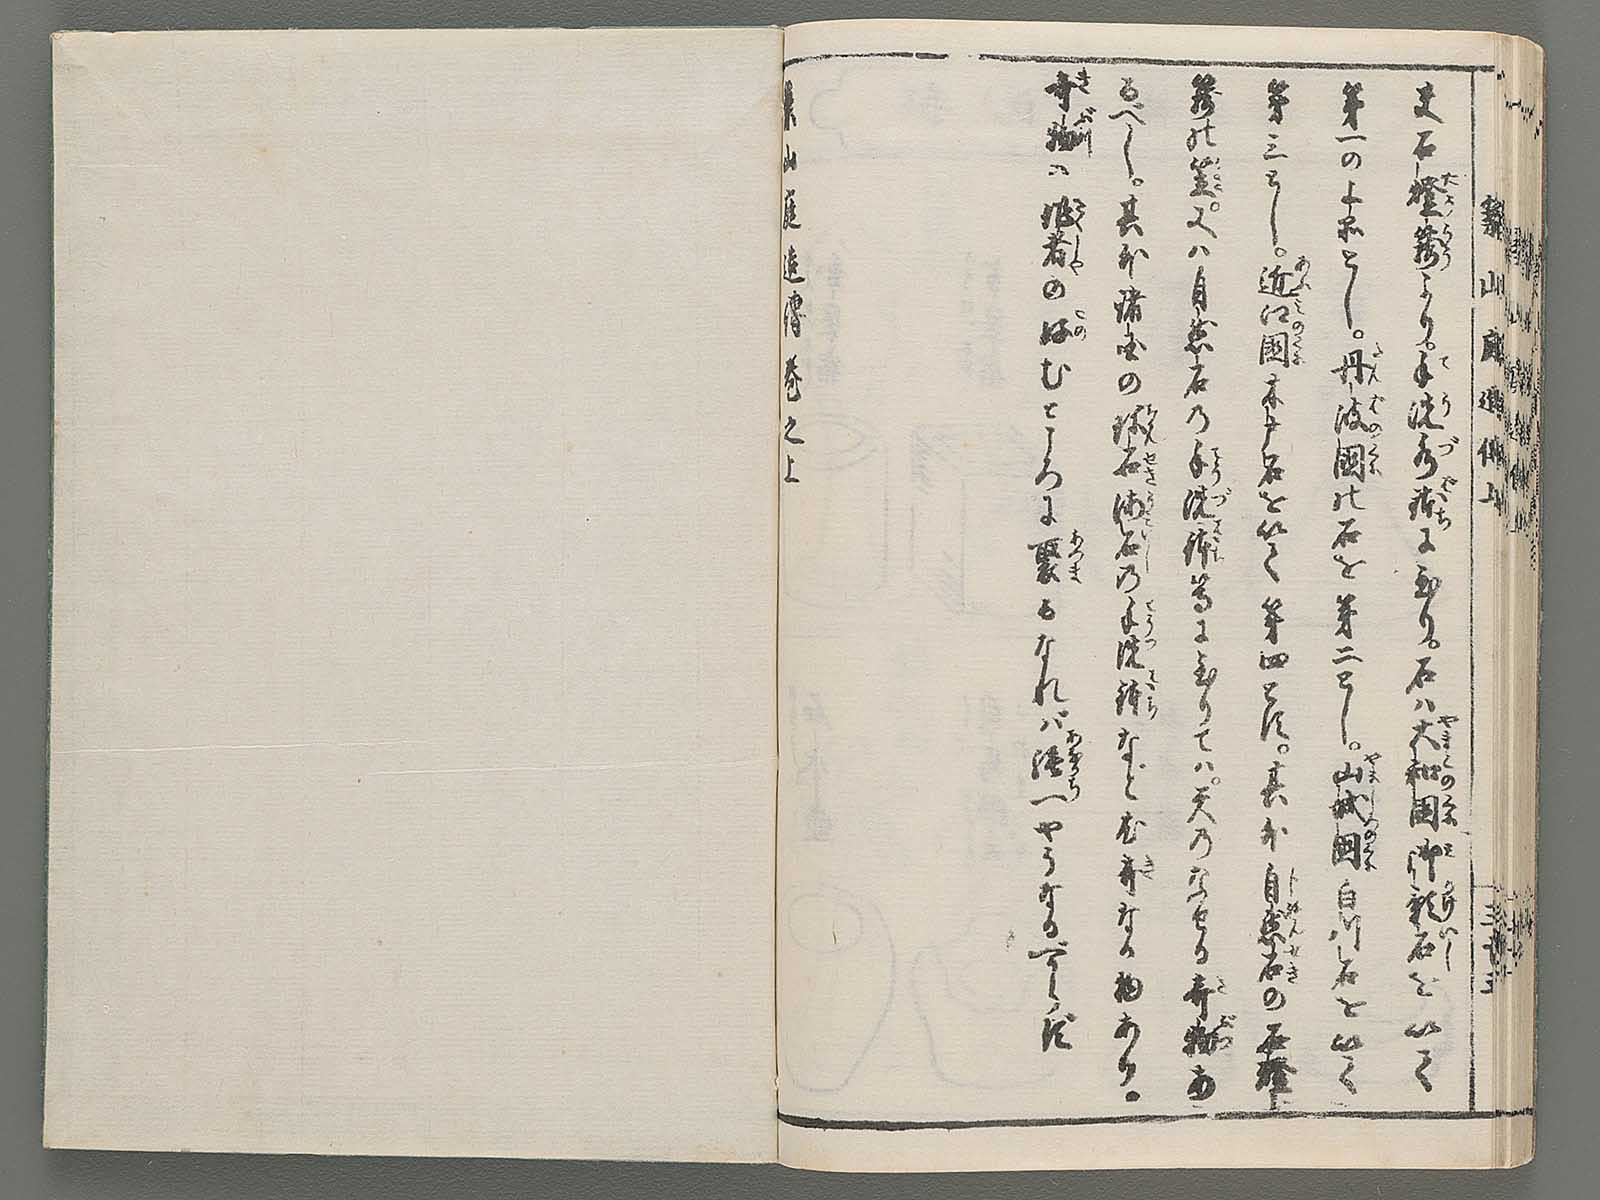 夫石燈籠より。手洗水鉢に至り。石ハ大和国御影石を以て
第一の上品とし。丹波国の石を第二とし。山城国白川石を以て
第三とし。近江国木戸石を以て第四とす。其外自然石の石燈
籠の笠。又ハ自然石の手洗鉢等に至りてハ。天のなせる奇物有
るべし。其外諸国の珍石海石の手洗鉢など尤奇なる物あり。
奇物ハ作者の好むところに聚るなれバ強一やうなるべからす
築山庭造傳巻之上
築山庭造傳上
三十三